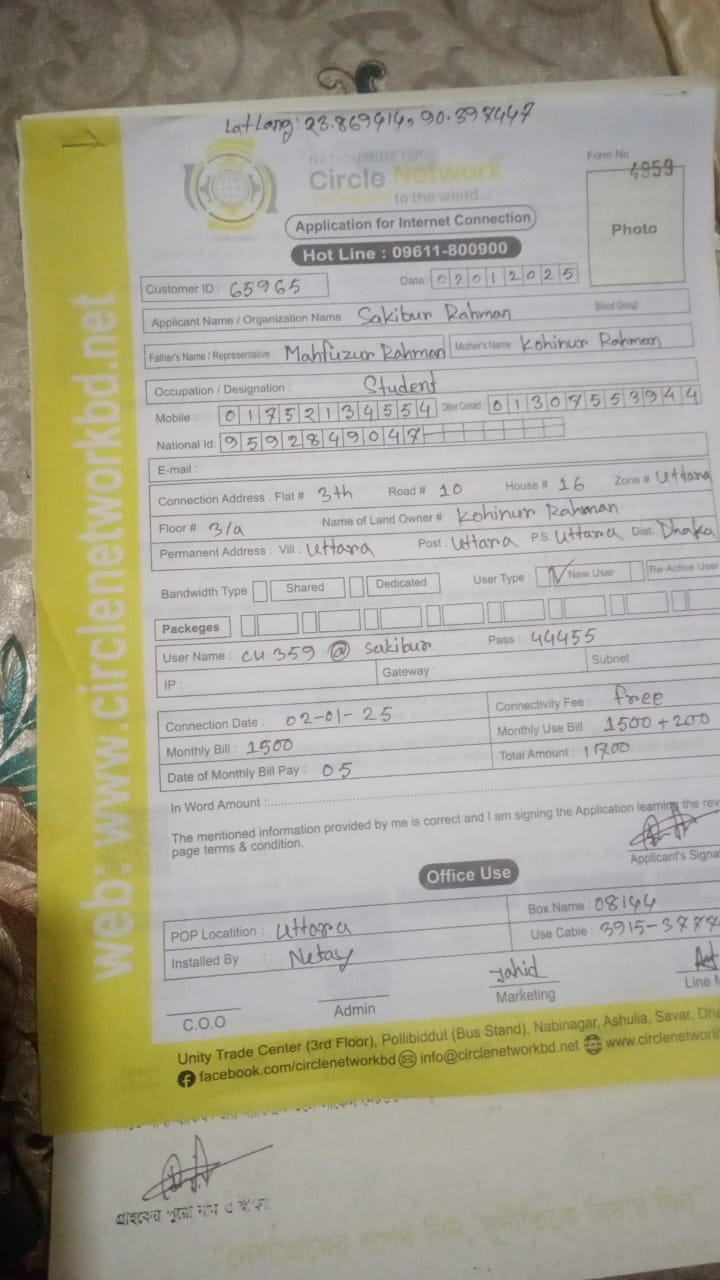 Lat Lang: 23.869414, 90.397447
NATIONWIDE ISP
Circle Network
Connecting to the world...
Form No 4959
Photo
Application for Internet Connection
Hot Line : 09611-800900
Customer ID : 65965 Date: 02012025
Applicant Name / Organization Name : Sakibur Rahman Blood Group
Father's Name / Representative : Mahfuzur Rahman Mother's Name : Kohinur Rahman
Occupation / Designation : Student
Mobile : 01752134554 Other Contact: 01307553944
National Id: 9592849047
E-mail :
Connection Address : Flat # 3th Road # 10 House # 16 Zone # Uttara
Floor # 3/a Name of Land Owner # Kohinur Rahman
Permanent Address : Vill : Uttara Post : Uttara P.S. Uttara Dist: Dhaka
Bandwidth Type Shared Dedicated User Type : New User Re-Active User
Packeges
User Name : cu 359 @ sakibur Pass : 44455
IP : Gateway : Subnet
Connection Date : 02-01-25 Connectivity Fee : free
Monthly Bill : 1500 Monthly Use Bill : 1500 + 200
Date of Monthly Bill Pay : 05 Total Amount : 1700
In Word Amount :
The mentioned information provided by me is correct and I am signing the Application learning the rev
page terms & condition.
Applicant's Signa
Office Use
POP Locatition : Uttara Box Name : 08144
Installed By : Use Cable : 3915-377
Jahid
C.O.O Admin Marketing Line M
Unity Trade Center (3rd Floor), Pollibiddut (Bus Stand), Nabinagar, Ashulia, Savar, Dha
facebook.com/circlenetworkbd info@circlenetworkbd.net www.circlenetwork
web: www.circlenetworkbd.net
গ্রাহকের পুরো নাম ও